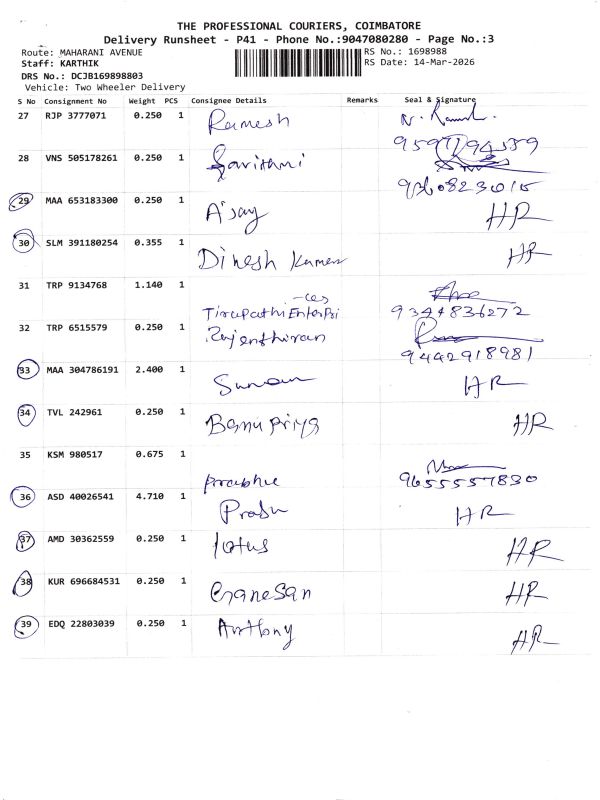 THE PROFESSIONAL COURIERS, COIMBATORE
Delivery Runsheet - P41 - Phone No.:9047080280 - Page No.:3
Route: MAHARANI AVENUE RS No.: 1698988
Staff: KARTHIK RS Date: 14-Mar-2026
DRS No.: DCJB169898803
Vehicle: Two Wheeler Delivery
S No Consignment No Weight PCS Consignee Details Remarks Seal & Signature
27 RJP 3777071 0.250 1 Ramesh
28 VNS 505178261 0.250 1
29 MAA 653183300 0.250 1 Ajay HR
30 SLM 391180254 0.355 1 Dinesh Kumar HR
31 TRP 9134768 1.140 1 Tirupathi Enterpri-ces 9344836272
32 TRP 6515579 0.250 1 Rajenthiran 9442918981
33 MAA 304786191 2.400 1 HR
34 TVL 242961 0.250 1 Banu Priya HR
35 KSM 980517 0.675 1 Prabhu 9655557830
36 ASD 40026541 4.710 1 Prabu HR
37 AMD 30362559 0.250 1 lotus HR
38 KUR 696684531 0.250 1 Ganesan HR
39 EDQ 22803039 0.250 1 Anthony HR